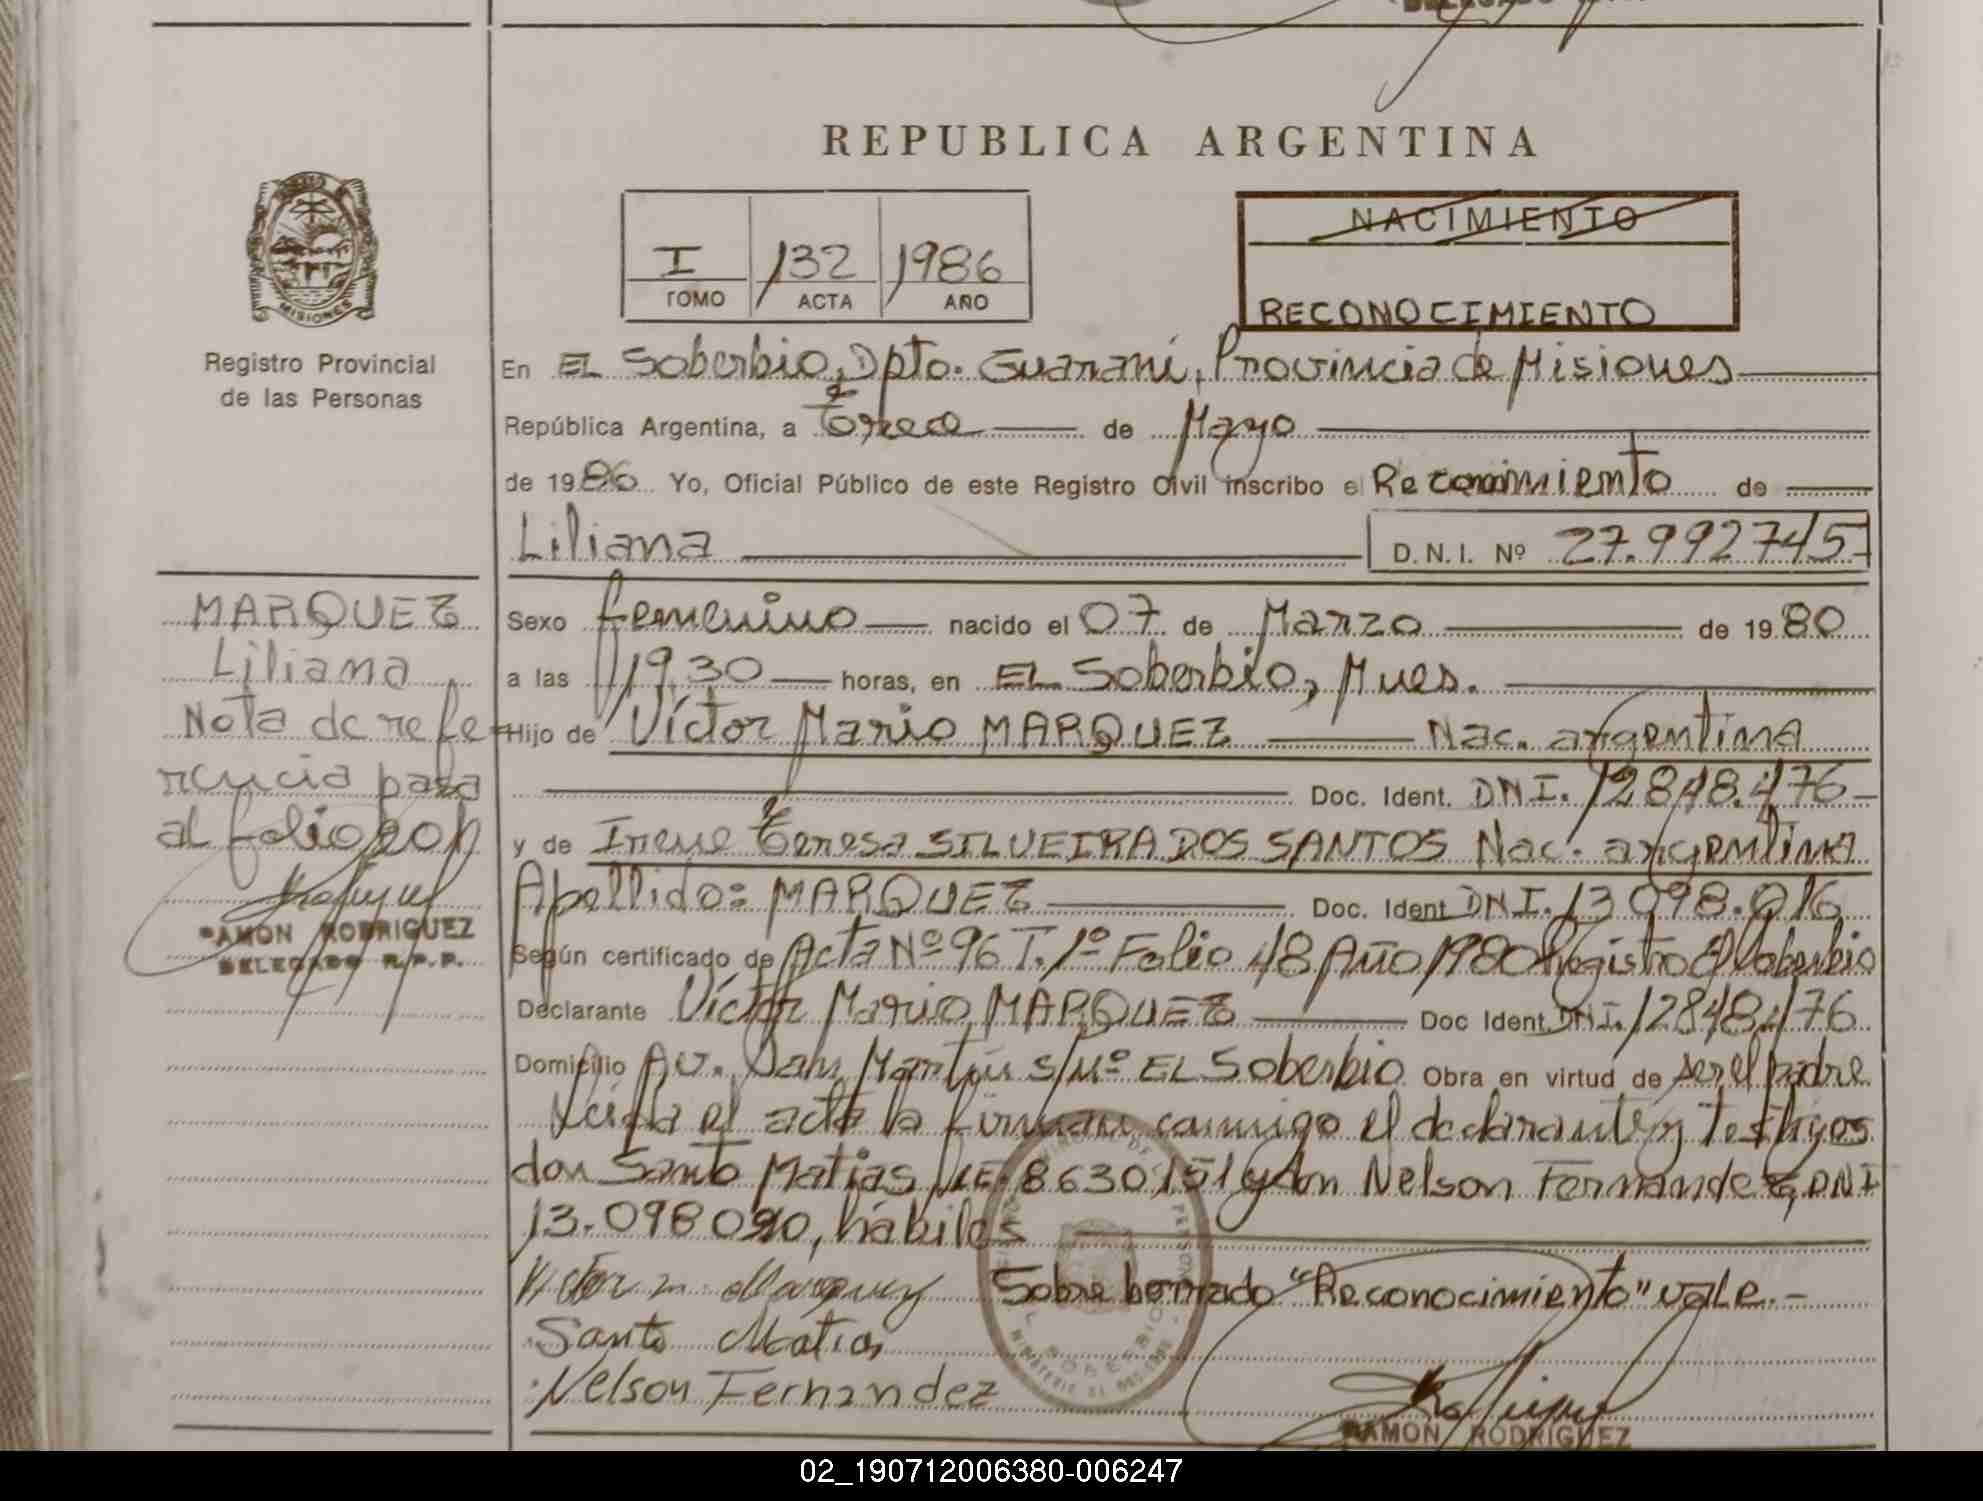 REPUBLICA ARGENTINA
MISIONES
Registro Provincial
de las Personas
I 132 1986
TOMO ACTA AÑO
NACIMIENTO
RECONOCIMIENTO
En EL Soberbio, Dpto. Guaraní, Provincia de Misiones
República Argentina, a Trece de Mayo
de 1986 Yo, Oficial Público de este Registro Civil inscribo el Reconimiento de
Liliana D.N.I. Nº 27.992745
MARQUEZ
Liliana
Nota de refe-
rencia pasa
al folio 201
RAMON RODRIGUEZ
DELEGADO R.P.P.
Sexo femenino nacido el 07 de Marzo de 1980
a las 19,30 horas, en EL Soberbio, Mnes.
Hijo de Víctor Mario MARQUEZ Nac. argentina
Doc. Ident. DNI. 12848.476
y de Irene Teresa SILVEIRA DOS SANTOS Nac. argentina
Apellido: MARQUEZ Doc. Ident DNI. 13098.016
Según certificado de Acta Nº 96 T. 1º Folio 48 Año 1980 Registro El Soberbio
Declarante Víctor Mario MARQUEZ Doc Ident DNI. 12848476
Domicilio Av. San Martín s/nº EL Soberbio Obra en virtud de ser el padre
Leída el acta la firman conmigo el declarante y testigos
don Santo Matias, LE. 8630151 y don Nelson Fernandez, DNI
13.098020, hábiles
Victor M. Marquez Sobre borrado "Reconocimiento" vale.-
Santo Matias
Nelson Fernandez
RAMON RODRIGUEZ
02_190712006380-006247